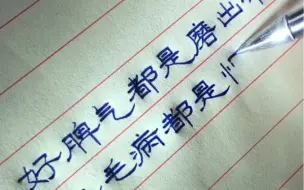 好脾气都是磨出
毛病都是